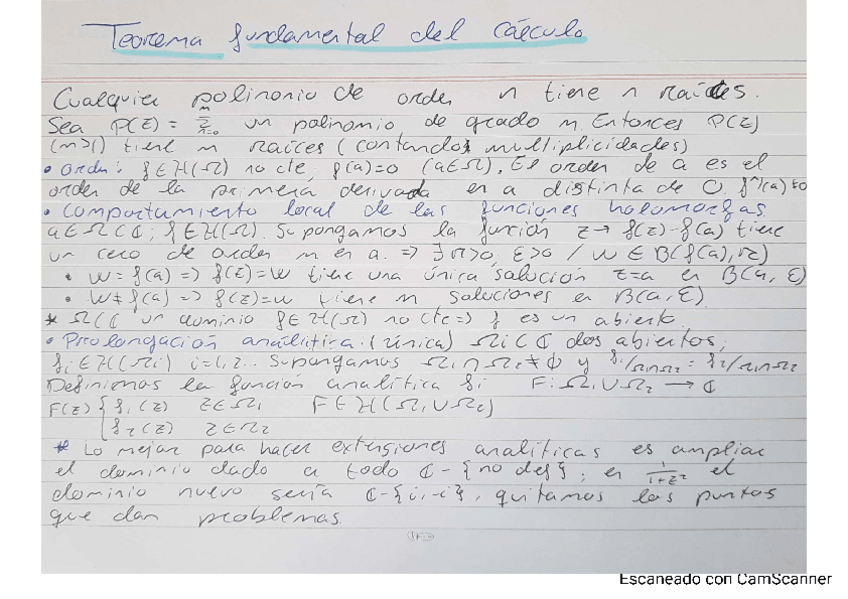 Teorema fundamental del cálculo
Cualquier polinomio de orden n tiene n raíces.
Sea P(z) = Σ un polinomio de grado n. Entonces P(z)
(n>1) tiene n raíces (contando multiplicidades)
• orden: f∈H(Ω) no cte, f(a)=0 (a∈Ω). El orden de a es el
orden de la primera derivada en a distinta de 0. fⁿ(a)≠0
• Comportamiento local de las funciones holomorfas.
a∈Ω⊂ℂ; f∈H(Ω). Supongamos la función z→ f(z)-f(a) tiene
un cero de orden n en a. => ∃ r>0, ε>0 / w ∈ B(f(a),r)
• w = f(a) => f(z)=w tiene una única solución z=a en B(a, ε)
• w≠f(a) => f(z)=w tiene n soluciones en B(a,ε)
* Ω⊂ℂ un dominio f∈H(Ω) no cte => f es un abierto.
• Prolongación analítica. (única) Ωi⊂ℂ dos abiertos,
fi∈H(Ωi) i=1,2.. Supongamos Ω₁∩Ω₂≠∅ y f₁/Ω₁∩Ω₂ = f₂/Ω₁∩Ω₂
Definimos la función analítica fi F: Ω₁∪Ω₂ → ℂ
F(z) { f₁(z) z∈Ω₁ F∈H(Ω₁∪Ω₂)
f₂(z) z∈Ω₂
* Lo mejor para hacer extensiones analíticas es ampliar
el dominio dado a todo ℂ-{no def}; en 1/(1+z²) el
dominio nuevo sería ℂ-{i,-i}, quitamos los puntos
que dan problemas.
Escaneado con CamScanner